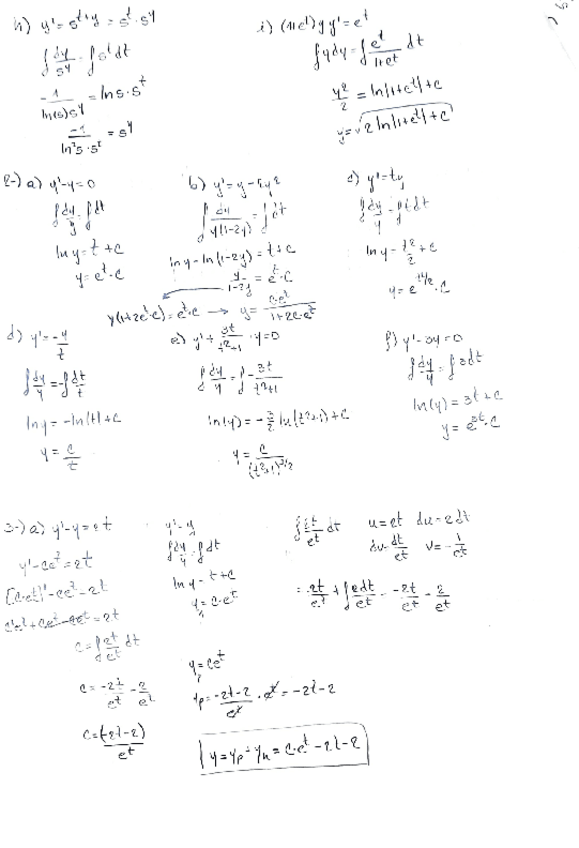 h) y' = s^(t+y) = s^t · s^y
∫ dy/s^y = ∫ s^t dt
-1/(ln(s) s^y) = ln s · s^t
-1/(ln²s · s^t) = s^y
i) (1+e^t) y y' = e^t
∫ y dy = ∫ e^t/(1+e^t) dt
y²/2 = ln|1+e^t| + c
y = √(2 ln|1+e^t| + c)
2-) a) y'-y=0
∫ dy/y = ∫ dt
ln y = t + c
y = e^t · c
b) y' = y - 2y²
∫ dy/(y(1-2y)) = ∫ dt
ln y - ln(1-2y) = t + c
y/(1-2y) = e^t · c
y(1+2e^t c) = e^t · c → y = c·e^t/(1+2c·e^t)
c) y' = ty
∫ dy/y = ∫ t dt
ln y = t²/2 + c
y = e^(t²/2) · c
d) y' = -y/t
∫ dy/y = -∫ dt/t
ln y = -ln|t| + c
y = c/t
e) y' + 3t/(t²+1) · y = 0
∫ dy/y = ∫ -3t/(t²+1)
ln(y) = -3/2 ln(t²+1) + c
y = c/(t²+1)^(3/2)
f) y' - 3y = 0
∫ dy/y = ∫ 3dt
ln(y) = 3t + c
y = e^(3t) · c
3-) a) y' - y = 2t
y' - ce^t = 2t
[c·e^t]' - ce^t = 2t
c'e^t + ce^t - ce^t = 2t
c = ∫ 2t/e^t dt
c = -2t/e^t - 2/e^t
c = (-2t-2)/e^t
y' = y
∫ dy/y = ∫ dt
ln y = t + c
y = c·e^t
y = ce^t
yp = (-2t-2)/e^t · e^t = -2t-2
y = yp + yh = c·e^t - 2t - 2
∫ 2t/e^t dt u = 2t du = 2dt
dv = dt/e^t v = -1/e^t
= -2t/e^t + ∫ 2dt/e^t = -2t/e^t - 2/e^t